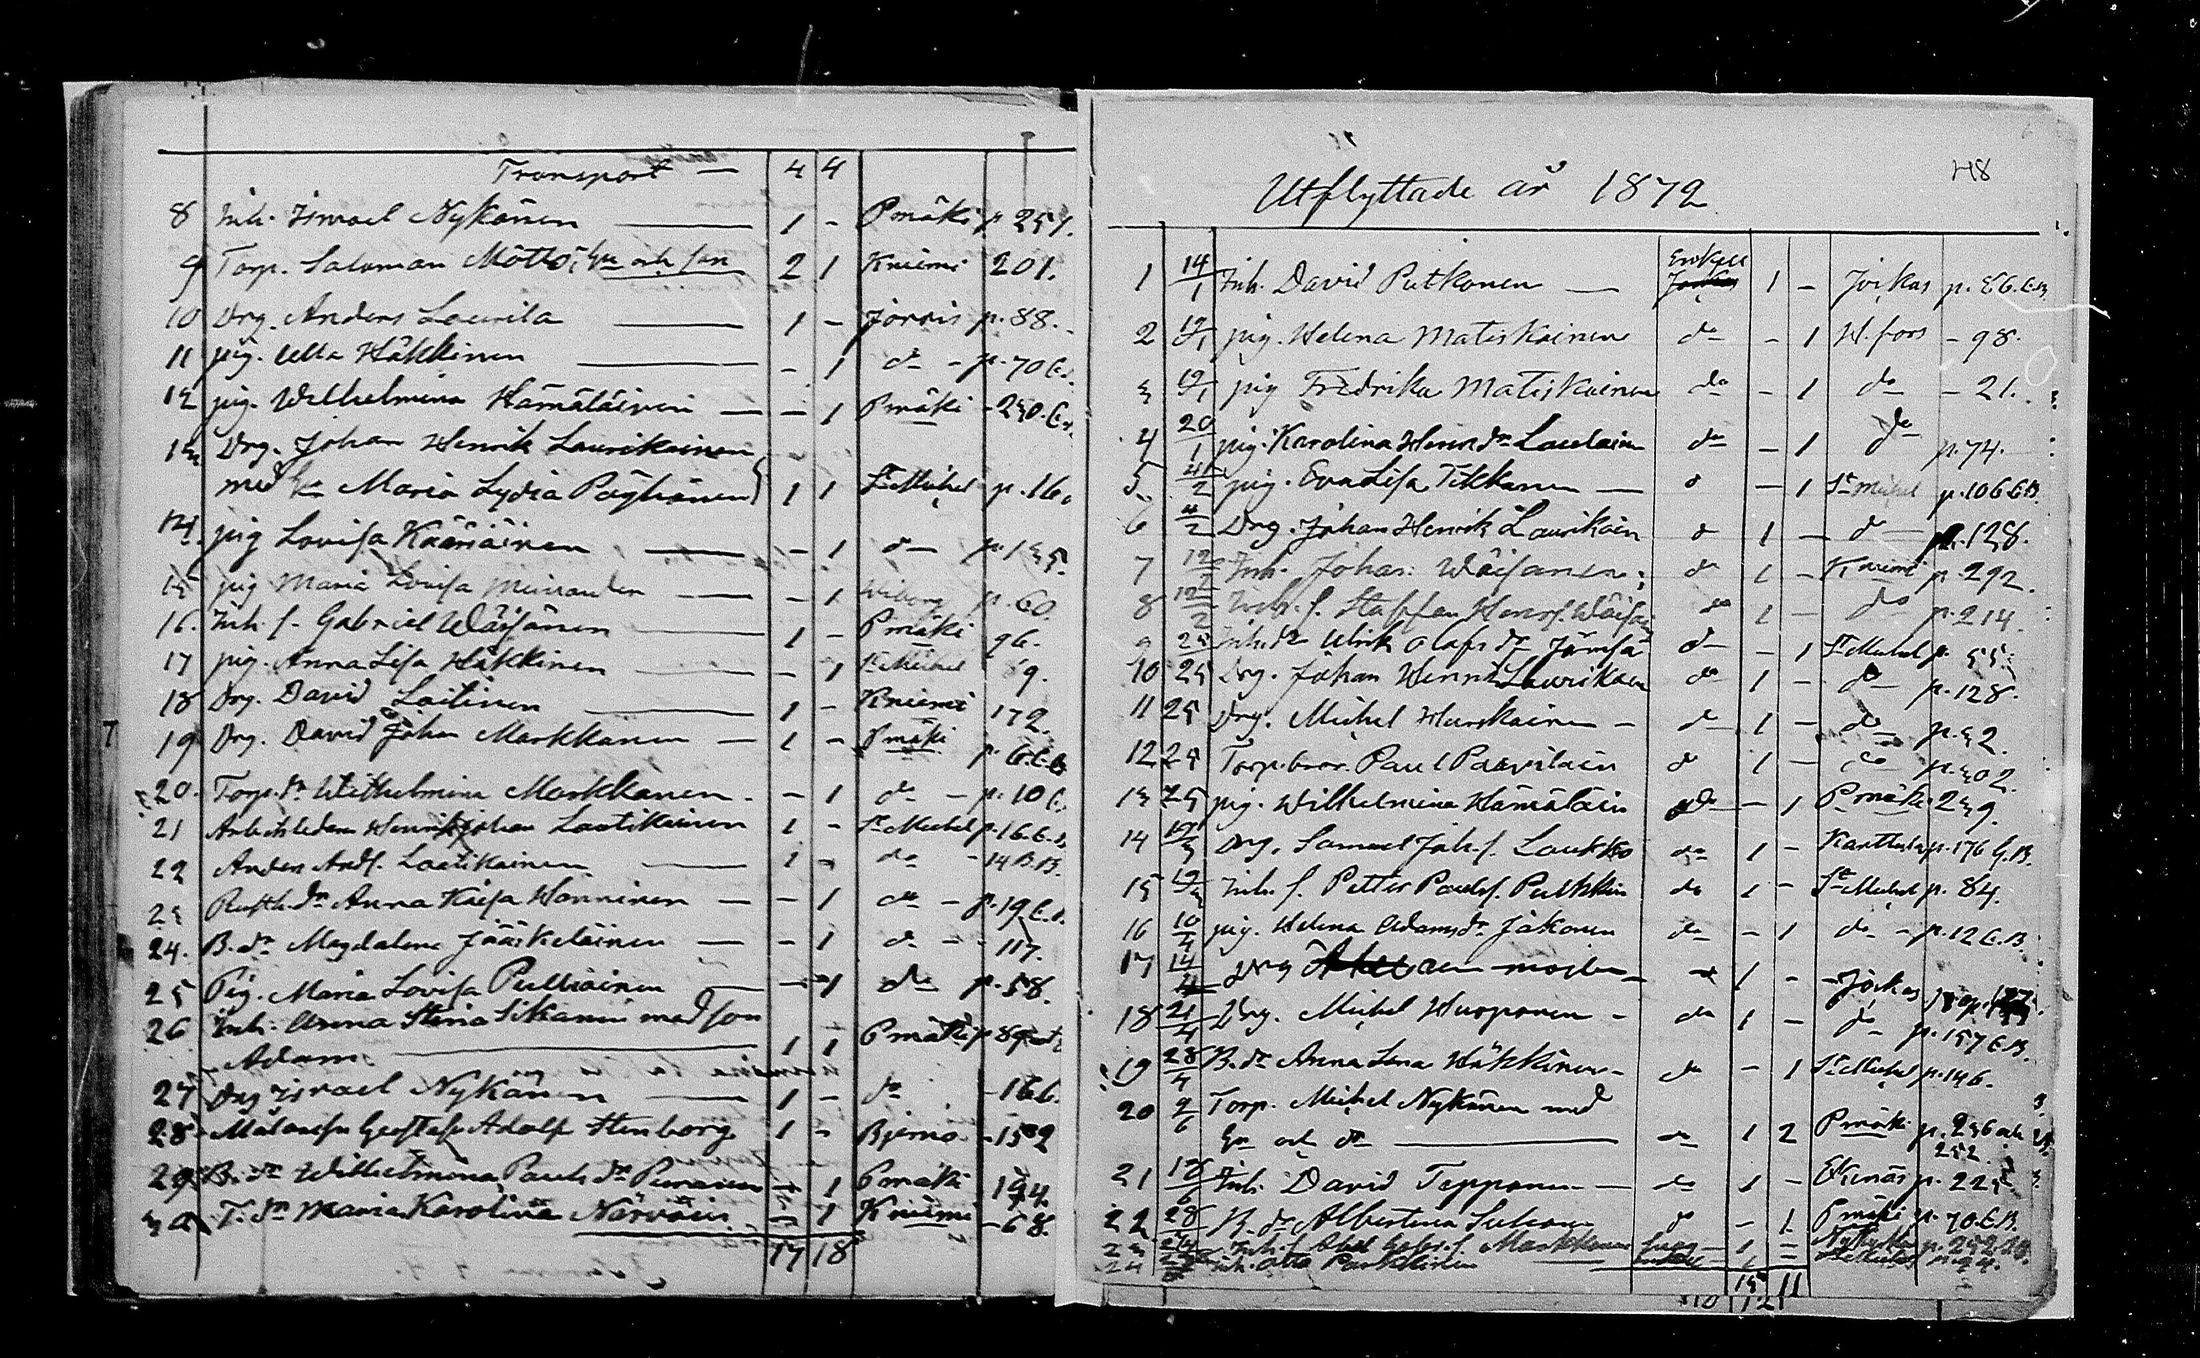 Transport — 4 4
8 Inh. Ismael Nykänen — 1 - Pmäki p. 251.
9 Torp. Saloman Möttö, hu och son 2 1 Kniemi 201.
10 Drg. Anders Laurila — 1 - Jorois p. 88.
11 pig. Ulla Häkkinen — - 1 do - p. 70
12 pig. Wilhelmina Hämäläinen — - 1 Pmäki - 230.
13 Drg. Johan Henrik Laurikainen
med hu Maria Lydia Pöyhönen 1 1 St Michel p. 16
14. pig Lovisa Kääriäinen — - 1 do p. 135.
15 pig Maria Lovisa — - 1 Wiborg p. 60.
16. Inh. s. Gabriel Wäisänen — 1 - Pmäki 96.
17 pig. Anna Lisa Häkkinen — - 1 St Michel 89.
18 Drg. David Laitinen — 1 - Kniemi 172.
19 Drg. David Johan Markkanen — 1 - Pmäki p. 6.C.B
20. Torp. dr Wilhelmina Markkanen - - 1 do - p. 10
21 Henrik Johan Laatikainen 1 - St Michel p. 16.C.B.
22 Anders Ands. Laatikainen — 1 - do - 14 B.B.
23 dr Anna Kaisa Hänninen — - 1 do - p. 19
24. B. dr Magdalena Jääskeläinen — - 1 do - 117.
25 Pig. Maria Lovisa Pulliainen — - 1 do p. 58.
26 Inh. Anna Stina Sikanen med son
Adam — 1 1 Pmäki p. 89
27 Drg Israel Nykänen — 1 - do - 166.
28 Målaresn Gustaf Adolf Stenborg 1 - Bjerno - 152
29 B. dr Wilhelmina Pauls dr Punanen - 1 Pmäki 194
30 T. dr Maria Karolina Närväin - 1 Kniemi - 68.
17 18
48
Utflyttade år 1872
1 14/1 Inh. David Putkonen — Enkell 1 - Joikas p. 86. C.B.
2 19/1 pig. Helena Matiskainen do - 1 H.fors - 98.
3 19/1 pig Fredrika Matiskainen do - 1 do - 21.
4 20/1 pig. Karolina Henrdr Laulain do - 1 do p. 74.
5 4/2 pig. Eva Lisa Tikkanen — do - 1 St Michel p. 106 C.B.
6 4/2 Drg. Johan Henrik Laurikain do 1 - do p. 128.
7 12/2 Inh. Johan Wäisänen do 1 - Kniemi p. 292.
8 12/2 Inh. s. Staffan Henrs. Wäisän do 1 - do p. 214.
9 25 Inh. dr Ulrik Olafs dr Jämsä do - 1 St Michel p. 55
10 25 Drg. Johan Henrik Laurikain do 1 - do p. 128.
11 25 Drg. Michel Hurskainen - do 1 - do p. 32.
12 25 Torp. bror. Paul Paavilain do 1 - do p. 302.
13 25 pig. Wilhelmina Hämäläin do - 1 Pmäki 239.
14 Drg. Samuel Joh. s. Laukko do 1 - Karttula p. 176 C.B.
15 19/3 Inh. s. Petter Pauls s. Pulkkin do 1 - St Michel p. 84.
16 10/4 pig. Helena Adamsdr Jäkonen do - 1 do - p. 12 C.B.
17 14/4 Drg — 1 - Joikas
18 21/4 Drg. Michel Huoponen - do 1 - do p. 157 C.B.
19 28/4 B. dr Anna Lena Häkkinen - do - 1 St Michel p. 146.
20 2/6 Torp. Michel Nykänen med
hu och dr — do 1 2 Pmäki p. 236 och 252
21 18/6 Inh. David Tepponen — do 1 - Ekenäs p. 225
22 28 B. dr Albertina do - 1 Pmäki p. 70. C.B.
23 Inh. s. Abel Gabr. s. Markkanen 1 - Nykyrka p. 252
24 Inh. Otto 1 -
15 11